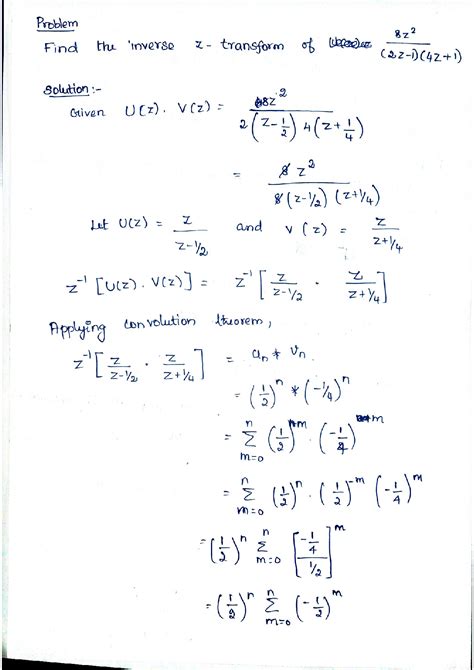 Problem
Find the inverse z-transform of 8z² / (2z-1)(4z+1)
Solution:-
Given U(z). V(z) = 8z² / 2(z-1/2) 4(z+1/4)
= 8z² / 8(z-1/2)(z+1/4)
Let U(z) = z / z-1/2 and V(z) = z / z+1/4
z⁻¹[U(z). V(z)] = z⁻¹[z / z-1/2 · z / z+1/4]
Applying convolution theorem,
z⁻¹[z / z-1/2 · z / z+1/4] = uₙ * vₙ
= (1/2)ⁿ * (-1/4)ⁿ
= Σ_{m=0}^{n} (1/2)ⁿ⁻ᵐ · (-1/4)ᵐ
= Σ_{m=0}^{n} (1/2)ⁿ · (1/2)⁻ᵐ (-1/4)ᵐ
= (1/2)ⁿ Σ_{m=0}^{n} [-1/4 / 1/2]ᵐ
= (1/2)ⁿ Σ_{m=0}^{n} (-1/2)ᵐ